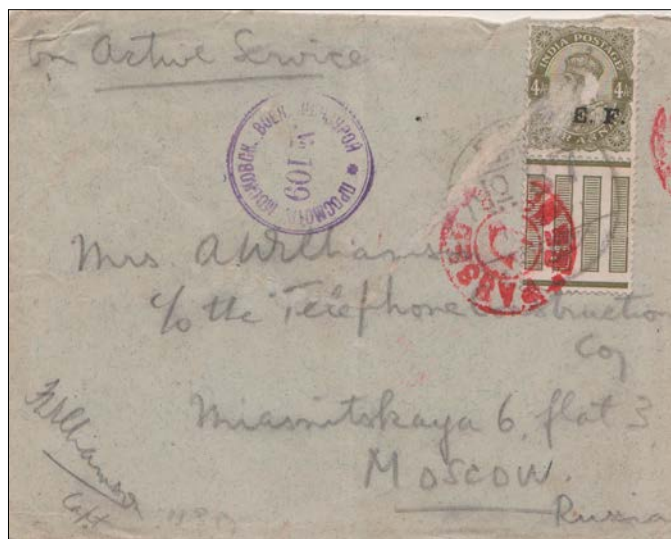 On Active Service
INDIA POSTAGE
4A 4A
E. F.
ПРОСМОТР. МОСКОВСК. ВОЕН. ЦЕНЗУРОЙ
№ 109
PASSED
Mrs. A Williams
c/o the Telephone Construction
Coy
Miasnitskaya 6, flat 3
Moscow.
Russia
Williams
Capt.